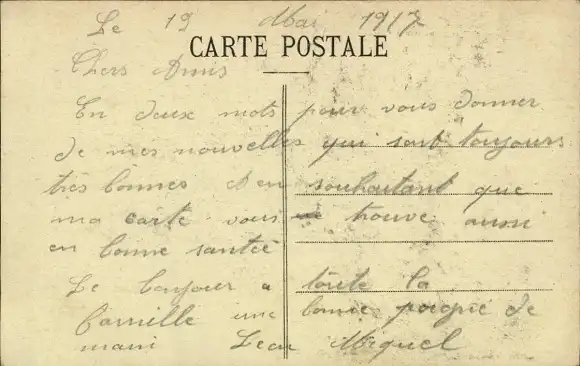 Le 19 Mai 1917
CARTE POSTALE
Chers Amis
En deux mots pour vous donner
de mes nouvelles qui sont toujours
très bonnes Den souhaitant que
ma carte vous trouve aussi
en bonne santée
Le bonjour a toute la
famille une bonne poigné de
main Leon Miquel